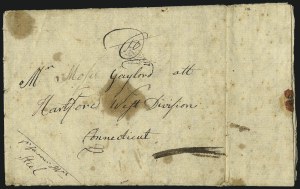 Mr Moses Gaylord att
Hartford West Division
Connecticut